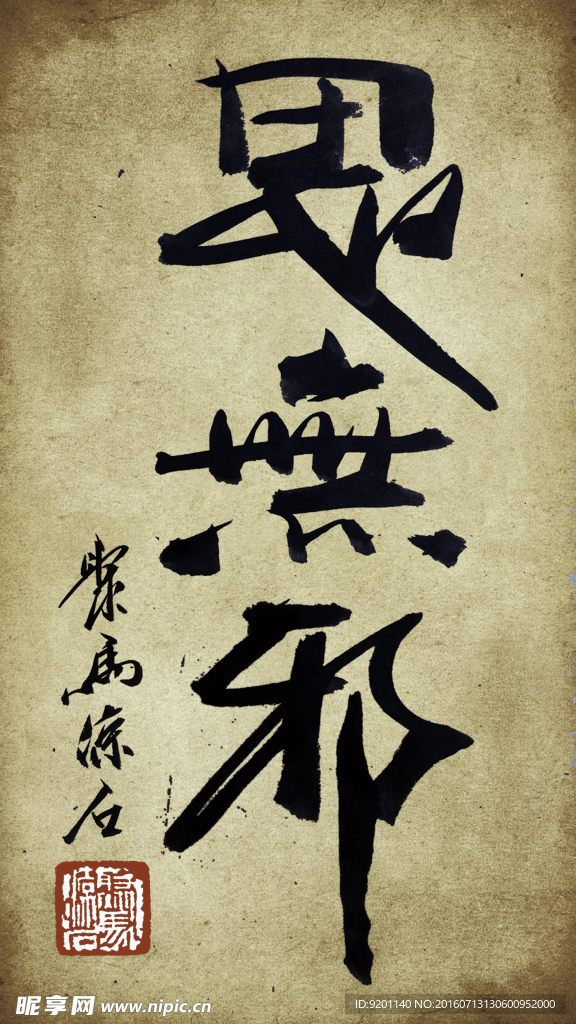 思無邪
聚馬涼石
昵享网 www.nipic.cn
ID:9201140 NO:20160713130600952000